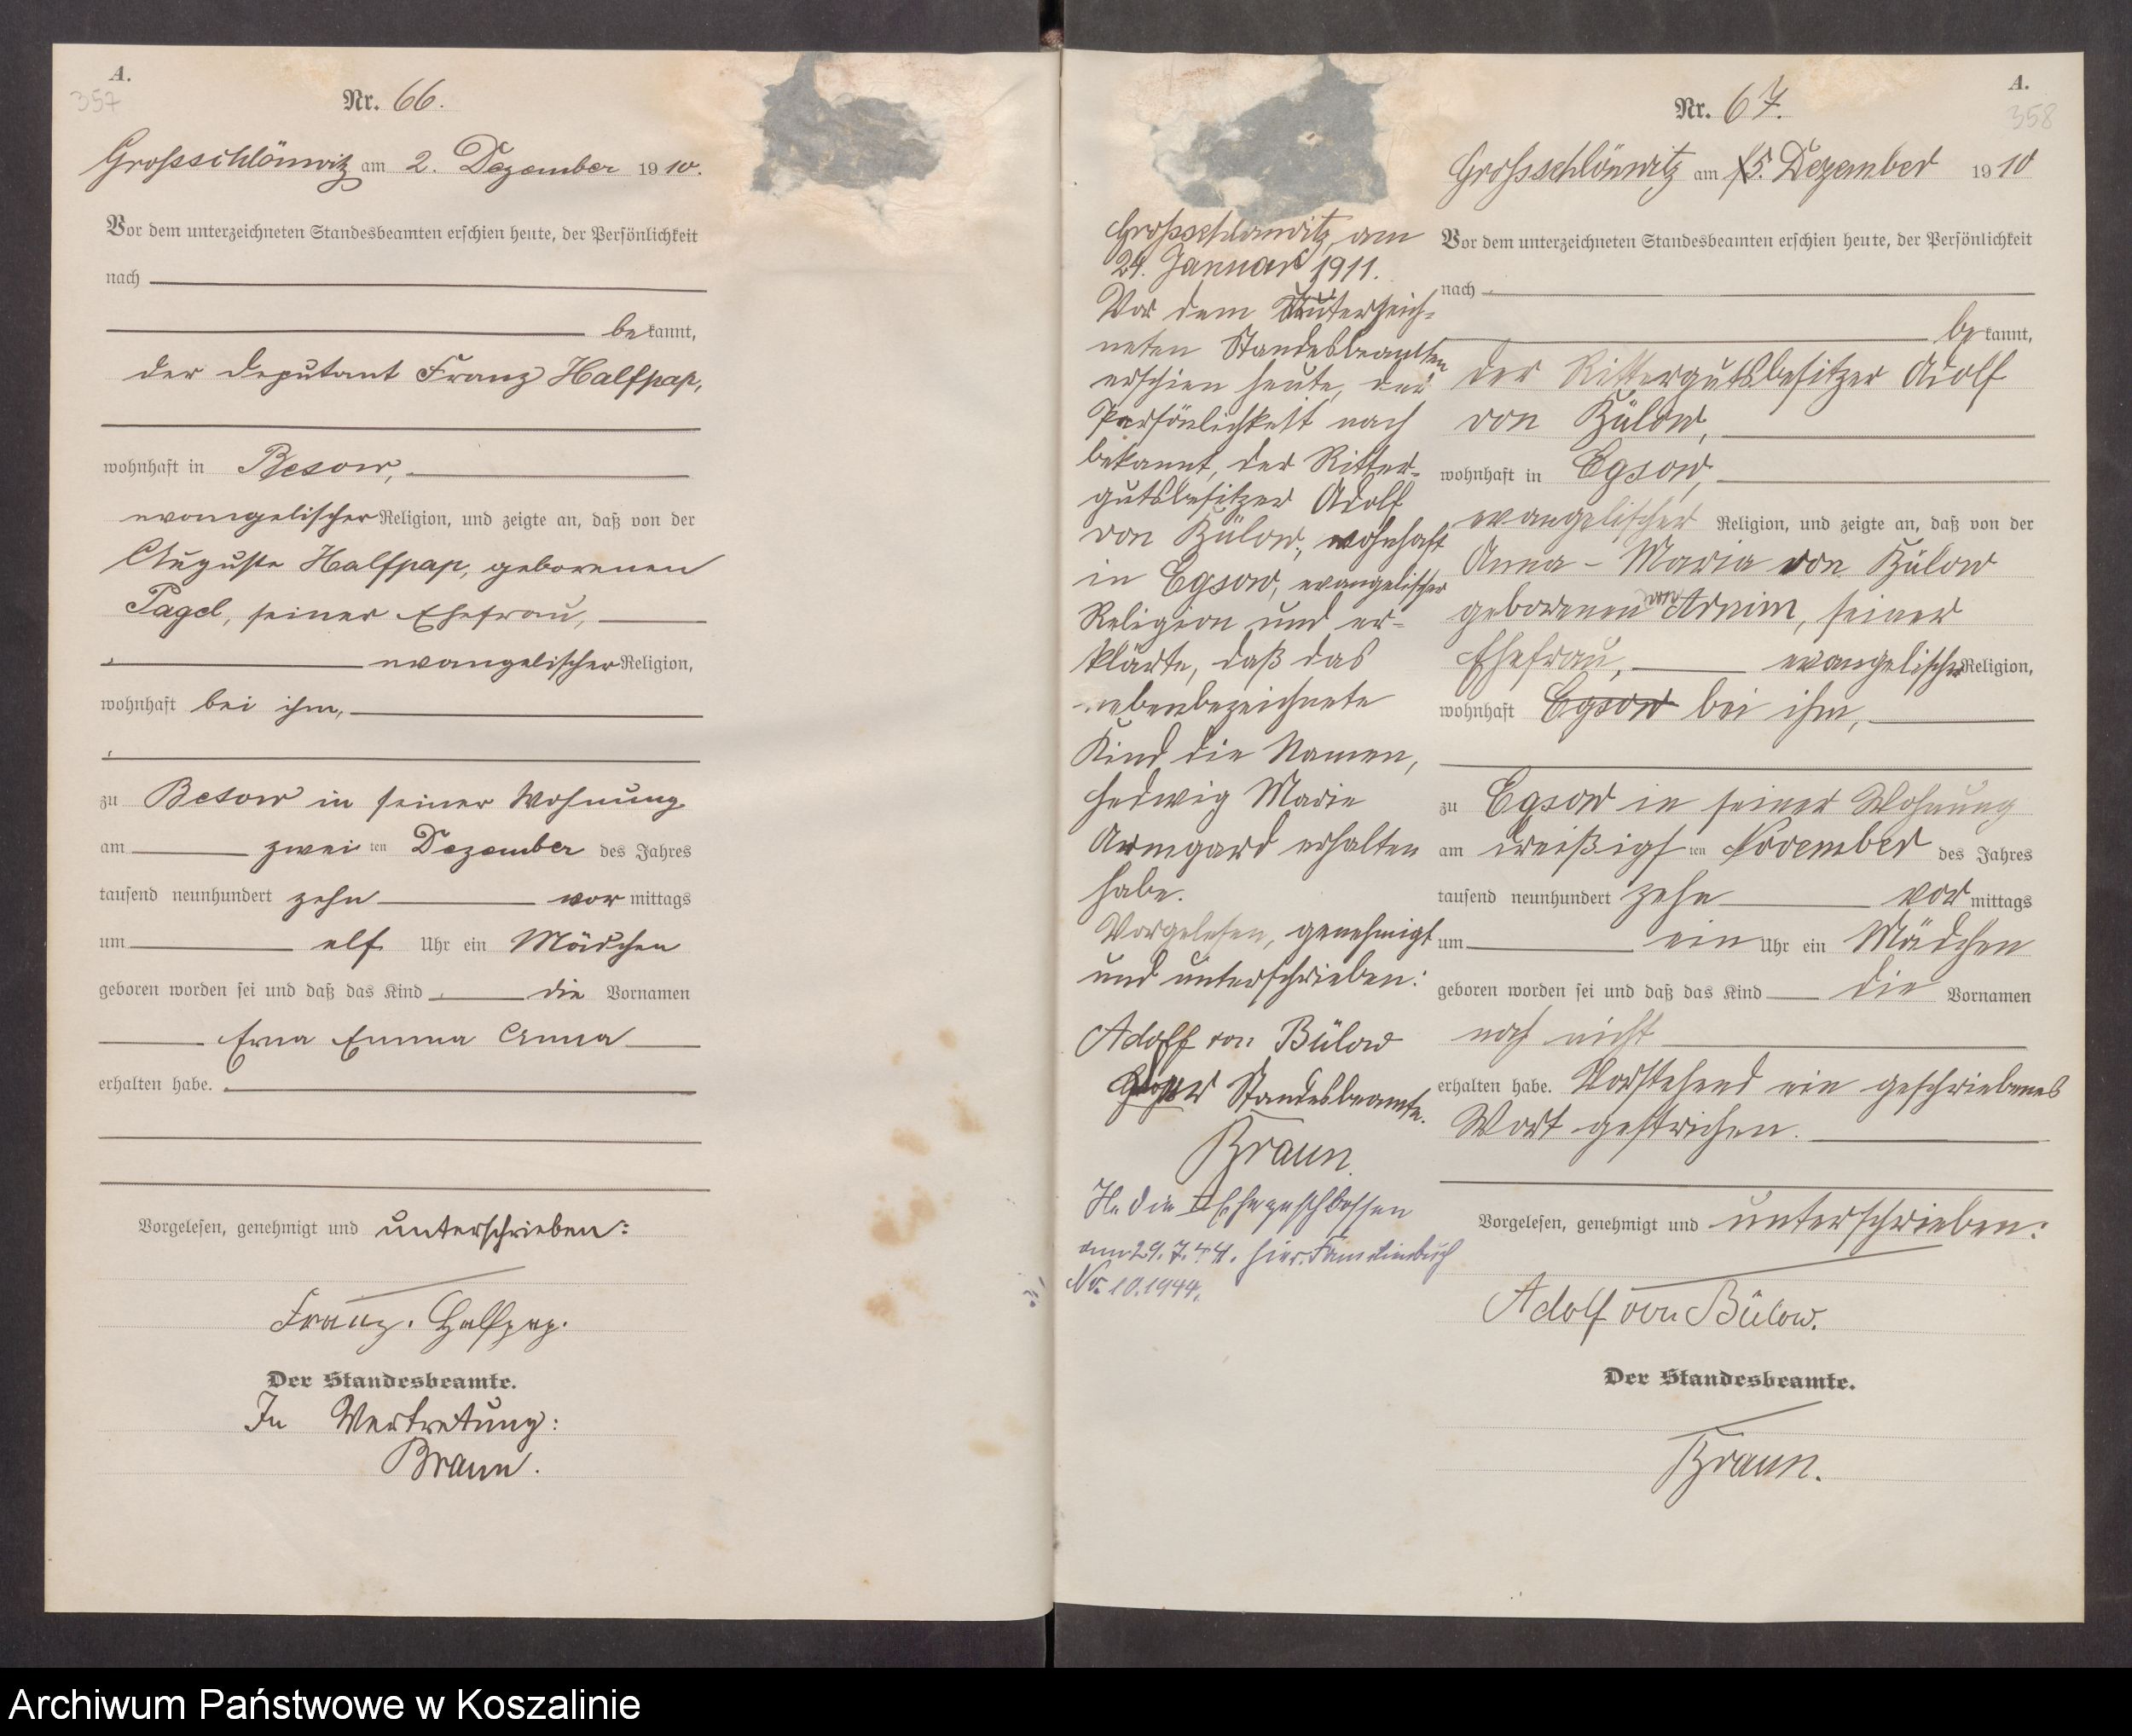 A.
357
Nr. 66.
Grossschlönwitz am 2. Dezember 1910.
Vor dem unterzeichneten Standesbeamten erschien heute, der Persönlichkeit
nach
bekannt,
der Deputant Franz Halfpap,
wohnhaft in Besow,
evangelischer Religion, und zeigte an, daß von der
Auguste Halfpap, geborenen
Pagel, seiner Ehefrau,
evangelischer Religion,
wohnhaft bei ihm,
zu Besow in seiner Wohnung
am zweiten Dezember des Jahres
tausend neunhundert zehn vormittags
um elf Uhr ein Mädchen
geboren worden sei und daß das Kind die Vornamen
Erna Emma Anna
erhalten habe.
Vorgelesen, genehmigt und unterschrieben:
Franz. Halfpap.
Der Standesbeamte.
In Vertretung:
Braun.
Grossschlönwitz, am
24. Januar 1911.
Vor dem unterzeich-
neten Standesbeamten
erschien heute, der
Persönlichkeit nach
bekannt, der Ritter-
gutsbesitzer Adolf
von Bülow, wohnhaft
in Egsow, evangelischer
Religion und er-
klärte, daß das
nebenbezeichnete
Kind die Namen,
Hedwig Marie
Armgard erhalten
habe.
Vorgelesen, genehmigt
und unterschrieben:
Adolf von Bülow
Der Standesbeamte.
Braun.
Ehe geschlossen
am 29.7.44. hier. Familienbuch
Nr. 10.1944.
A.
358
Nr. 67.
Grossschlönwitz am 5. Dezember 1910
Vor dem unterzeichneten Standesbeamten erschien heute, der Persönlichkeit
nach
bekannt,
der Rittergutsbesitzer Adolf
von Bülow,
wohnhaft in Egsow,
evangelischer Religion, und zeigte an, daß von der
Anna-Maria von Bülow
geborenen von Arnim, seiner
Ehefrau, evangelischer Religion,
wohnhaft Egsow bei ihm,
zu Egsow in seiner Wohnung
am dreißigsten November des Jahres
tausend neunhundert zehn vormittags
um ein Uhr ein Mädchen
geboren worden sei und daß das Kind die Vornamen
noch nicht
erhalten habe. Vorstehend ein geschriebenes
Wort gestrichen.
Vorgelesen, genehmigt und unterschrieben:
Adolf von Bülow.
Der Standesbeamte.
Braun.
Archiwum Państwowe w Koszalinie